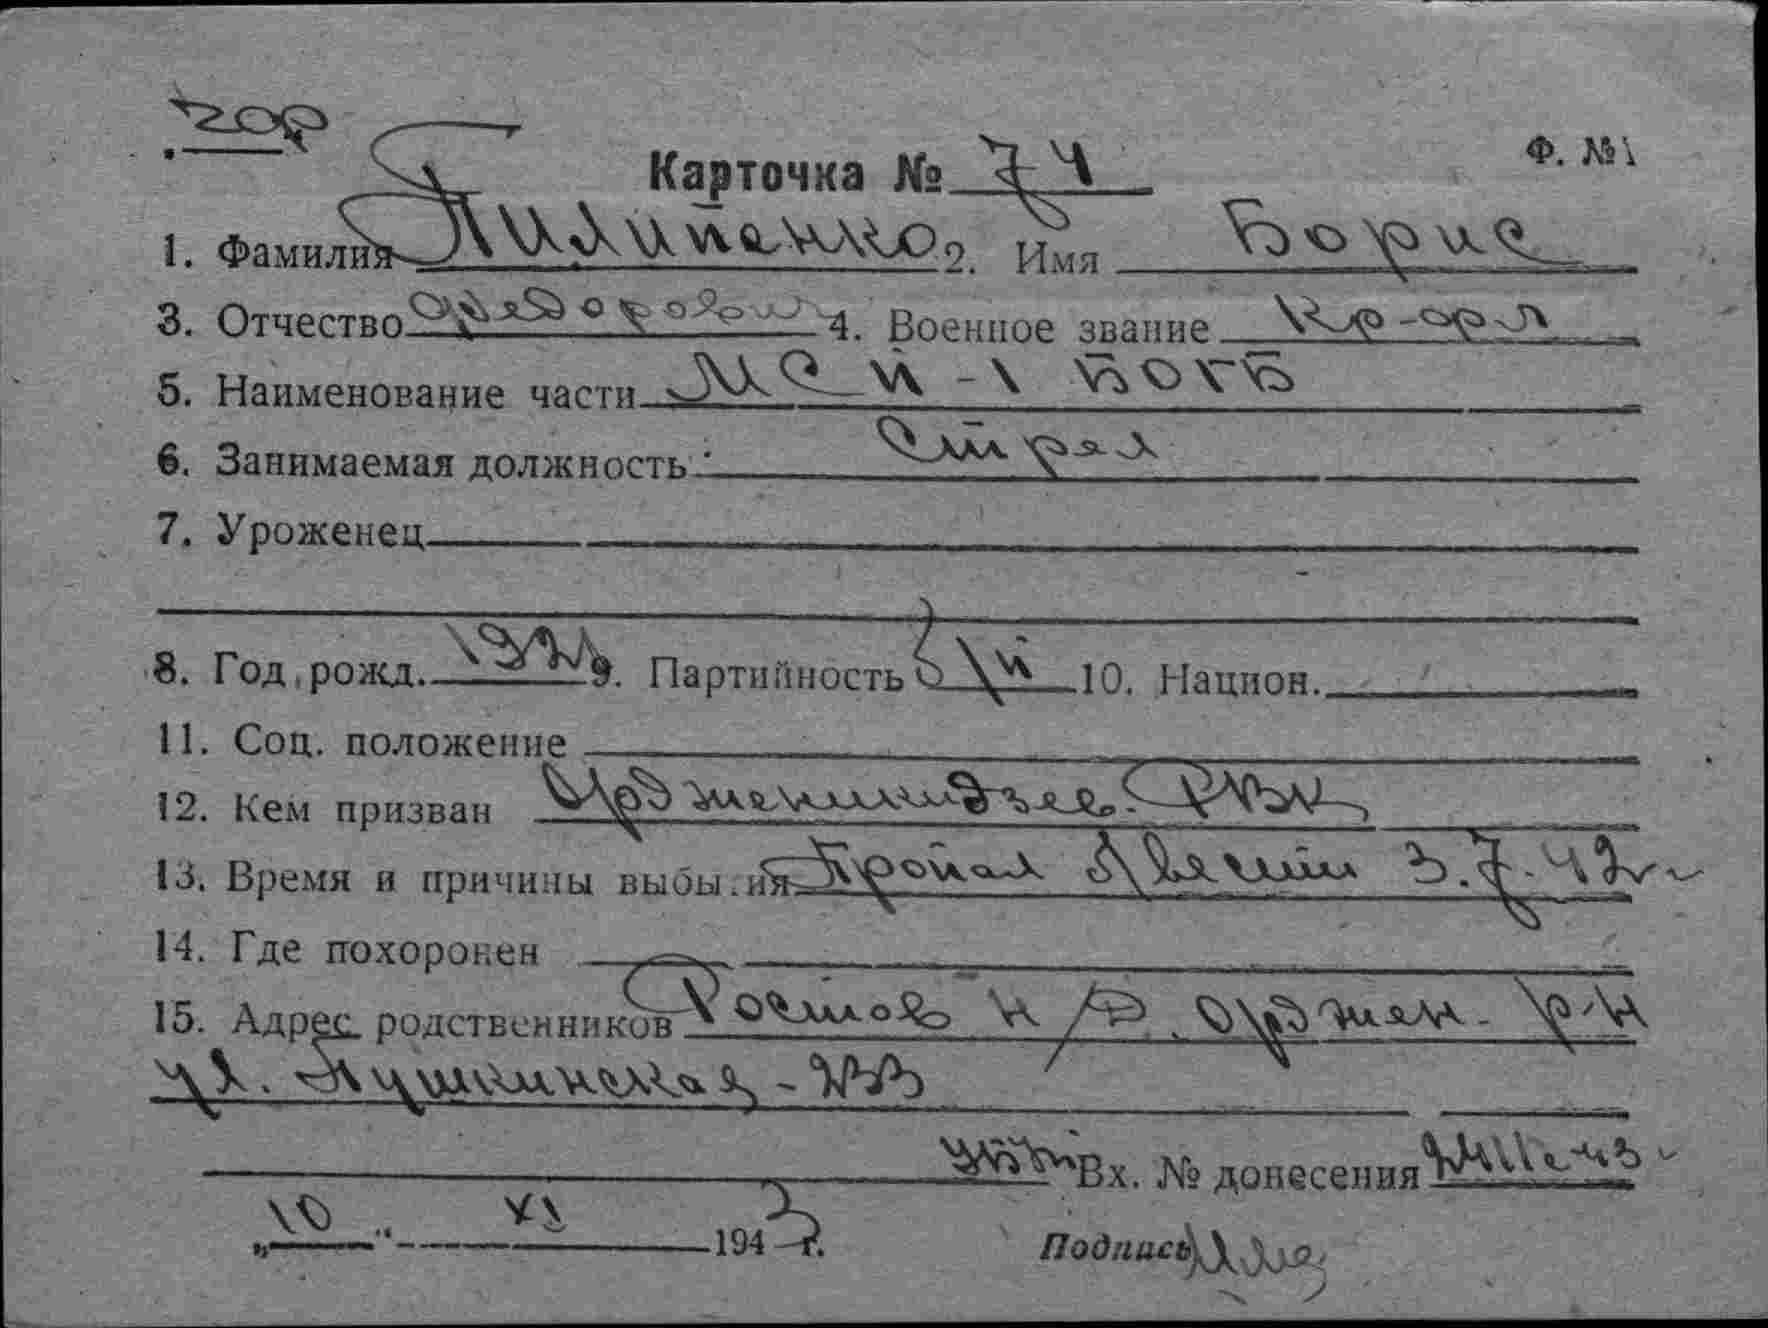 Ф. №1
Карточка № 74
1. Фамилия Пилипенко 2. Имя Борис
3. Отчество Федорович 4. Военное звание Кр-арм
5. Наименование части
6. Занимаемая должность Стрел
7. Уроженец
8. Год рожд. 9. Партийность б/п 10. Национ.
11. Соц. положение
12. Кем призван Орджоникидзев. РВК
13. Время и причины выбытия Пропал 3.7.42 г
14. Где похоронен
15. Адрес родственников Ростов н/Д. Орджен. р-н
ул. Пушкинская -
Вх. № донесения
„10" XI 1943 г. Подпись